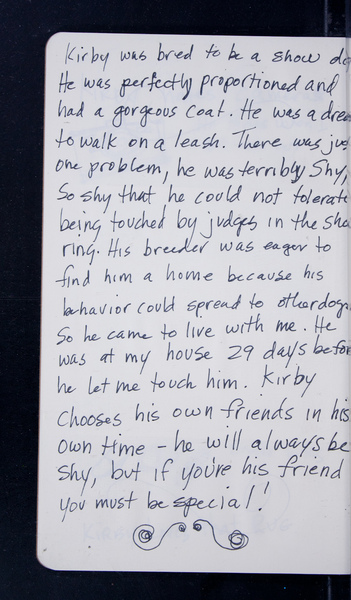 Kirby was bred to be a show do
He was perfectly proportioned and
had a gorgeous coat. He was a drea
to walk on a leash. There was jus
one problem, he was terribly shy,
So shy that he could not tolerate
being touched by judges in the sho
ring. His breeder was eager to
find him a home because his
behavior could spread to other dogs
So he came to live with me. He
was at my house 29 days befor
he let me touch him. Kirby
Chooses his own friends in his
own time - he will always be
shy, but if you're his friend
you must be special!